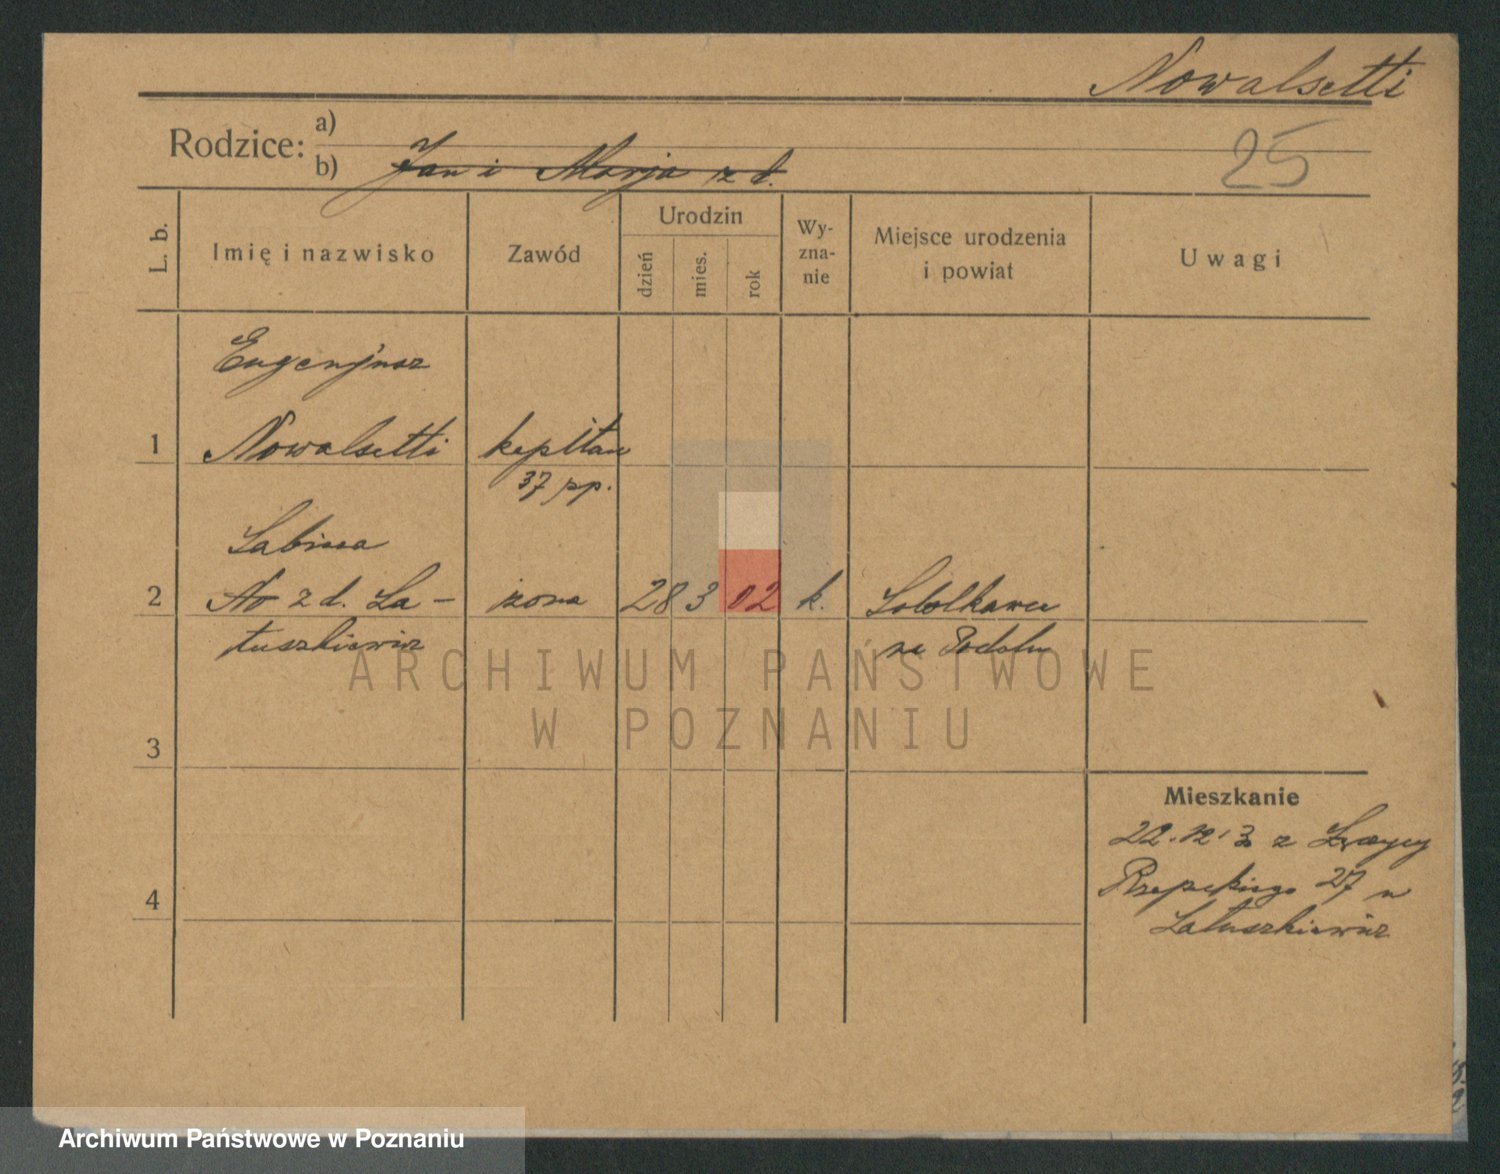 Nowalsetti
Rodzice:
a)
b) Jan i Marja z d.
25
L. b.
Imię i nazwisko
Zawód
Urodzin
dzień
mies.
rok
Wy-
zna-
nie
Miejsce urodzenia
i powiat
Uwagi
Eugenjusz
1 Nowalsetti kapitan
37 pp.
Sabina
2 No z d. La- żona 28 3 02 k.
tuszkiewicz na Podolu
3
Mieszkanie
22.12.30 z Łęczycy
4 Rzepeckiego 27 u
Latuszkiewicz
ARCHIWUM PAŃSTWOWE
W POZNANIU
Archiwum Państwowe w Poznaniu